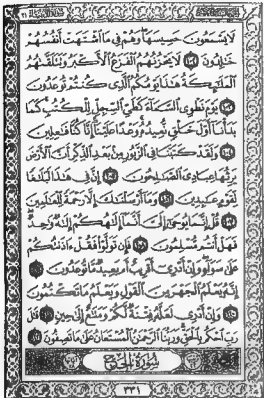 لَا يَسْمَعُونَ حَسِيسَهَا وَهُمْ فِي مَا اشْتَهَتْ أَنفُسُهُمْ
خَالِدُونَ ١٠٢ لَا يَحْزُنُهُمُ الْفَزَعُ الْأَكْبَرُ وَتَتَلَقَّاهُمُ
الْمَلَائِكَةُ هَذَا يَوْمُكُمُ الَّذِي كُنتُمْ تُوعَدُونَ
١٠٣ يَوْمَ نَطْوِي السَّمَاءَ كَطَيِّ السِّجِلِّ لِلْكُتُبِ كَمَا
بَدَأْنَا أَوَّلَ خَلْقٍ نُّعِيدُهُ وَعْدًا عَلَيْنَا إِنَّا كُنَّا فَاعِلِينَ
١٠٤ وَلَقَدْ كَتَبْنَا فِي الزَّبُورِ مِن بَعْدِ الذِّكْرِ أَنَّ الْأَرْضَ
يَرِثُهَا عِبَادِيَ الصَّالِحُونَ ١٠٥ إِنَّ فِي هَذَا لَبَلَاغًا
لِّقَوْمٍ عَابِدِينَ ١٠٦ وَمَا أَرْسَلْنَاكَ إِلَّا رَحْمَةً لِّلْعَالَمِينَ
١٠٧ قُلْ إِنَّمَا يُوحَى إِلَيَّ أَنَّمَا إِلَهُكُمْ إِلَهٌ وَاحِدٌ
فَهَلْ أَنتُم مُّسْلِمُونَ ١٠٨ فَإِن تَوَلَّوْا فَقُلْ آذَنتُكُمْ
عَلَى سَوَاءٍ وَإِنْ أَدْرِي أَقَرِيبٌ أَم بَعِيدٌ مَّا تُوعَدُونَ ١٠٩
إِنَّهُ يَعْلَمُ الْجَهْرَ مِنَ الْقَوْلِ وَيَعْلَمُ مَا تَكْتُمُونَ
١١٠ وَإِنْ أَدْرِي لَعَلَّهُ فِتْنَةٌ لَّكُمْ وَمَتَاعٌ إِلَى حِينٍ ١١١ قَالَ
رَبِّ احْكُم بِالْحَقِّ وَرَبُّنَا الرَّحْمَنُ الْمُسْتَعَانُ عَلَى مَا تَصِفُونَ ١١٢
سُورَةُ الْحَجِّ
٣٣١